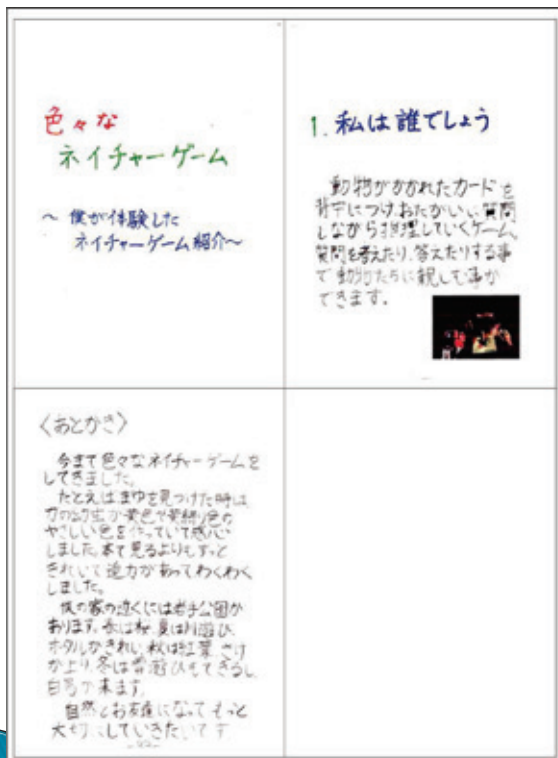 色々な
ネイチャーゲーム
〜僕が体験した
ネイチャーゲーム紹介〜
1. 私は誰でしょう
動物がかかれたカードを
背中につけ、おたがいに質問
しながら推理していくゲーム。
質問を考えたり、答えたりする事
で動物たちに親しむ事が
できます。
〈あとがき〉
今まで色々なネイチャーゲームを
してきました。
たとえばまゆを見つけた時は
黄色や黄緑色の
やさしい色を作っていて感心
しました。本で見るよりもずっと
きれいで迫力があってわくわく
しました。
僕の家の近くには岩手公園が
あります。春は桜、夏は川遊び、
ホタルがきれい、秋は紅葉、さけ
がより、冬は雪遊びもできるし、
白鳥が来ます。
自然とお友達になってもっと
大切にしていきたいです